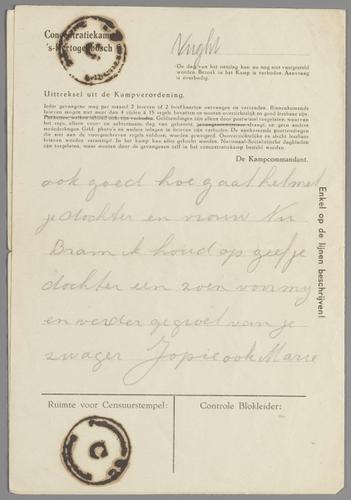 Concentratiekamp
's-Hertogenbosch
Vught
De dag van het ontslag kan nu nog niet vastgesteld
worden. Bezoek in het Kamp is verboden. Aanvraag
is overbodig.
Uittreksel uit de Kampverordening.
Ieder gevangene mag per maand 2 brieven of 2 briefkaarten ontvangen en verzenden. Binnenkomende
brieven mogen niet meer dan 4 zijden à 15 regels bevatten en moeten overzichtelijk en goed leesbaar zijn.
Pakketten, welken inhoud ook zijn verboden. Geldzendingen zijn alleen door postwissel toegelaten, waarvan
het strookje alleen voor- en achternaam, dag van geboorte, draagt, en geen andere
mededeelingen. Geld, photo's en andere inlagen in brieven zijn verboden. De aankomende postzendingen
die niet aan de voorgeschreven regels voldoen, worden geweigerd. Onoverzichtelijke en slecht leesbare
brieven worden vernietigd. In het kamp kan alles gekocht worden. Nationaal-Socialistische dagbladen
zijn toegelaten, maar moeten door de gevangenen zelf in het concentratiekamp besteld worden.
De Kampcommandant.
ook goed hoe gaat het met
je dochter en vrouw Nu
Bram ik houd op geef je
dochter een zoen voor my
en verder gegroet van je
zwager Jopie ook Marie
Enkel op de lijnen beschrijven!
Ruimte voor Censuurstempel:
Controle Blokleider:
C